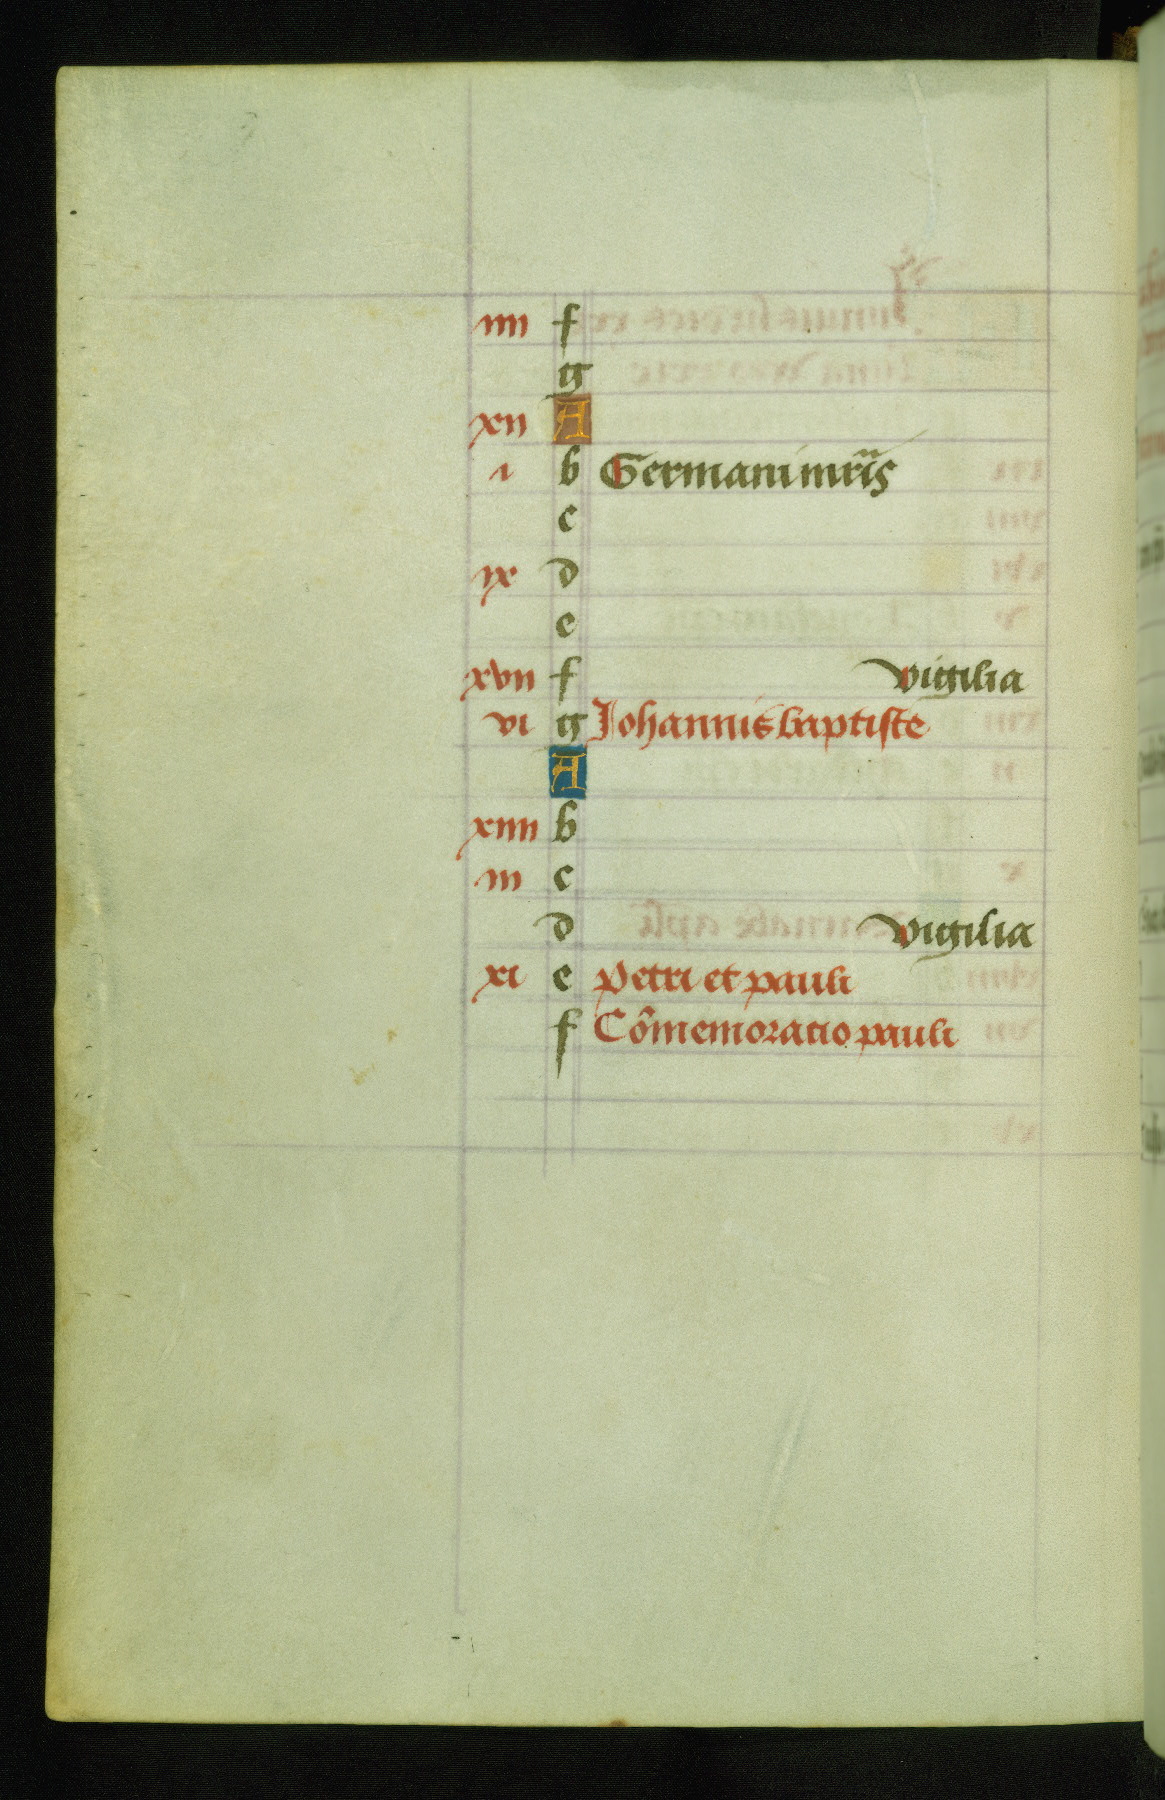 iiii f
g
xii A
i b Germani mr̄is
c
ix d
e
xvii f vigilia
vi g Johannis baptiste
A
b xiiii
iii c
d vigilia
xi e Petri et pauli
f Cōmemoratio pauli